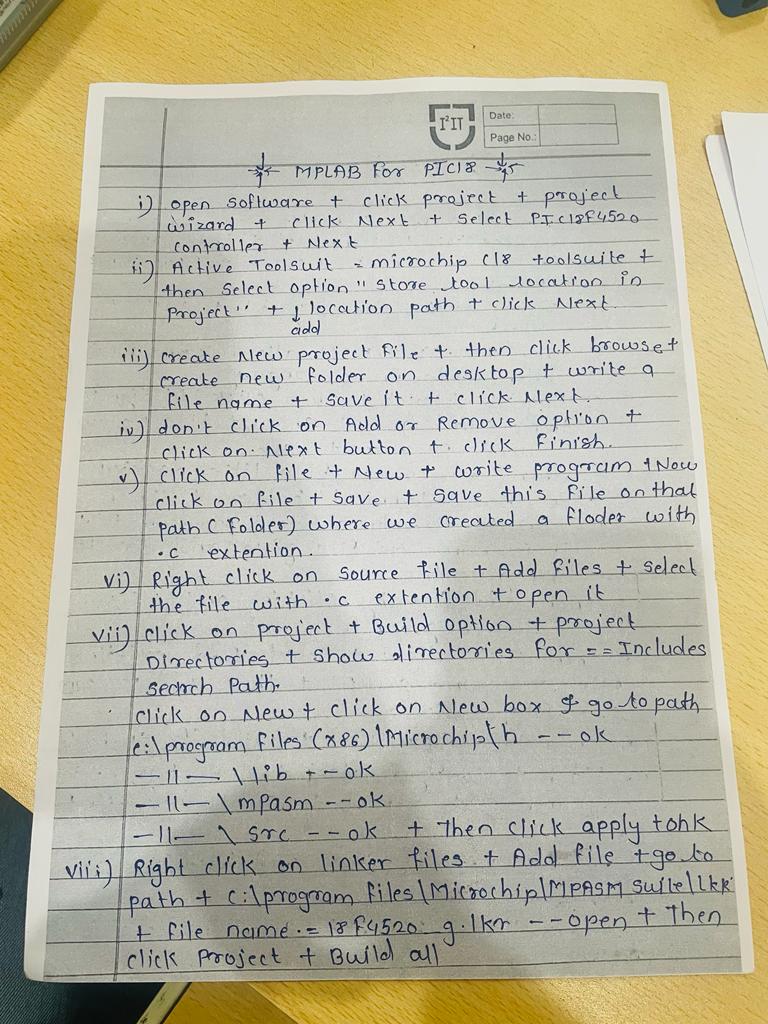 I²IT
Date:
Page No.:
MPLAB For PIC18
i) open software + click project + project
wizard + click Next + select PIC18F4520
controller + Next
ii) Active Toolsuit = microchip C18 toolsuite +
then select option " store tool location in
Project" + ↓ location path + click Next.
add
iii) create New project file + then click browse +
create new folder on desktop + write a
file name + save it + click Next.
iv) don't click on Add or Remove option +
click on Next button + click Finish.
v) click on file + New + write program + Now
click on file + save + save this file on that
path ( Folder) where we created a floder with
.c extention.
vi) Right click on source file + Add files + select
the file with .c extention + open it
vii) click on project + Build option + project
Directories + show directories for == Includes
search Path.
click on New + click on New box & go to path
c:\program files (x86)\Microchip\h -- ok
—11— \lib +-ok
—11— \mpasm --ok
—11— \ src --ok + Then click apply + ohk
viii) Right click on linker files + Add file + go to
path + C:\program files\Microchip\MPASM suite\Lkr
+ file name.= 18F4520 g.lkr --open + Then
click project + Build all